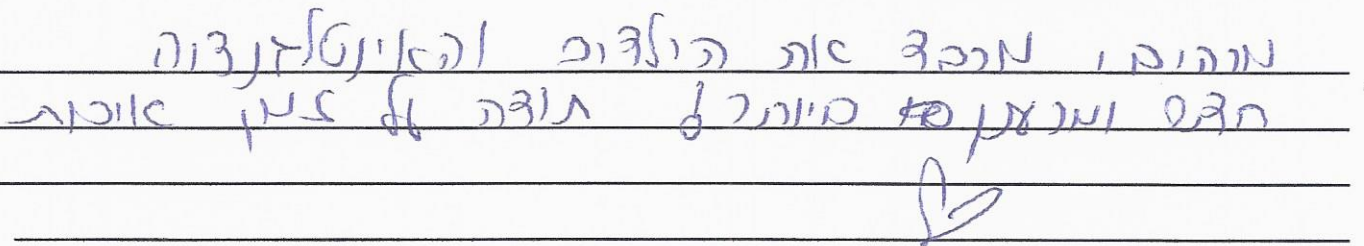 מרהיב, מכבד את הילדים והאינטלגנציה
חדש ומרענן ביותר! תודה על זמן איכות